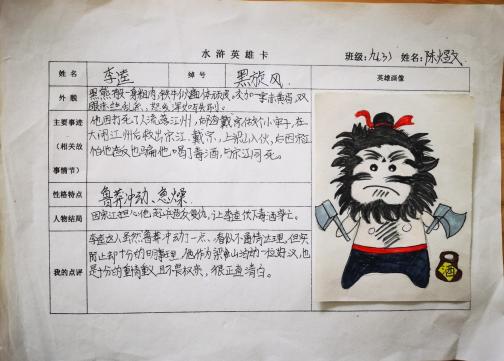 水浒英雄卡 班级:九(3) 姓名:陈熠文
姓名 李逵 绰号 黑旋风 英雄画像
外貌 黑熊般一身粗肉,铁牛似遍体顽皮,交加一字赤黄眉,双
眼赤丝乱系,怒发浑如铁刷。
主要事迹 他因打死了人流落江州,戴宗 小牢子,在
(相关故 大闹江州后救出宋江、戴宗,上梁山入伙,后因宋江
事情节) 怕他造反也骗他喝了毒酒,与宋江同死。
性格特点 鲁莽冲动、急燥
人物结局 因宋江担心他 造反复仇,让李逵饮下毒酒身亡。
李逵这人虽然鲁莽冲动了一点、看似不通情达理,但实
际上却十分的明事理,他作为梁山 一位好汉,也
我的点评 是十分的重情重义,且不畏权贵,很正直清白。
酒